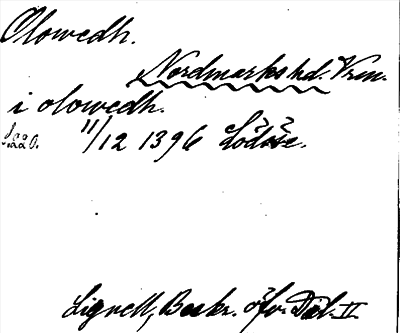 Olowedh.
Nordmarks hd. Vrm.
i olowedh.
11/12 1396 Lödöse.
Lignell, Beskr. öfver Dal. II.